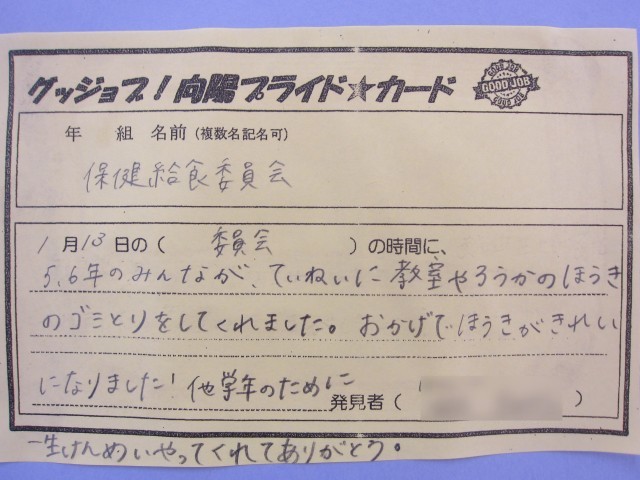 グッジョブ！向陽プライド☆カード
GOOD JOB
年 組 名前（複数名記名可）
保健給食委員会
1月13日の（ 委員会 ）の時間に、
5,6年のみんなが、ていねいに教室やろうかのほうき
のゴミとりをしてくれました。おかげでほうきがきれい
になりました！他学年のために
発見者（ ）
一生けんめいやってくれてありがとう。